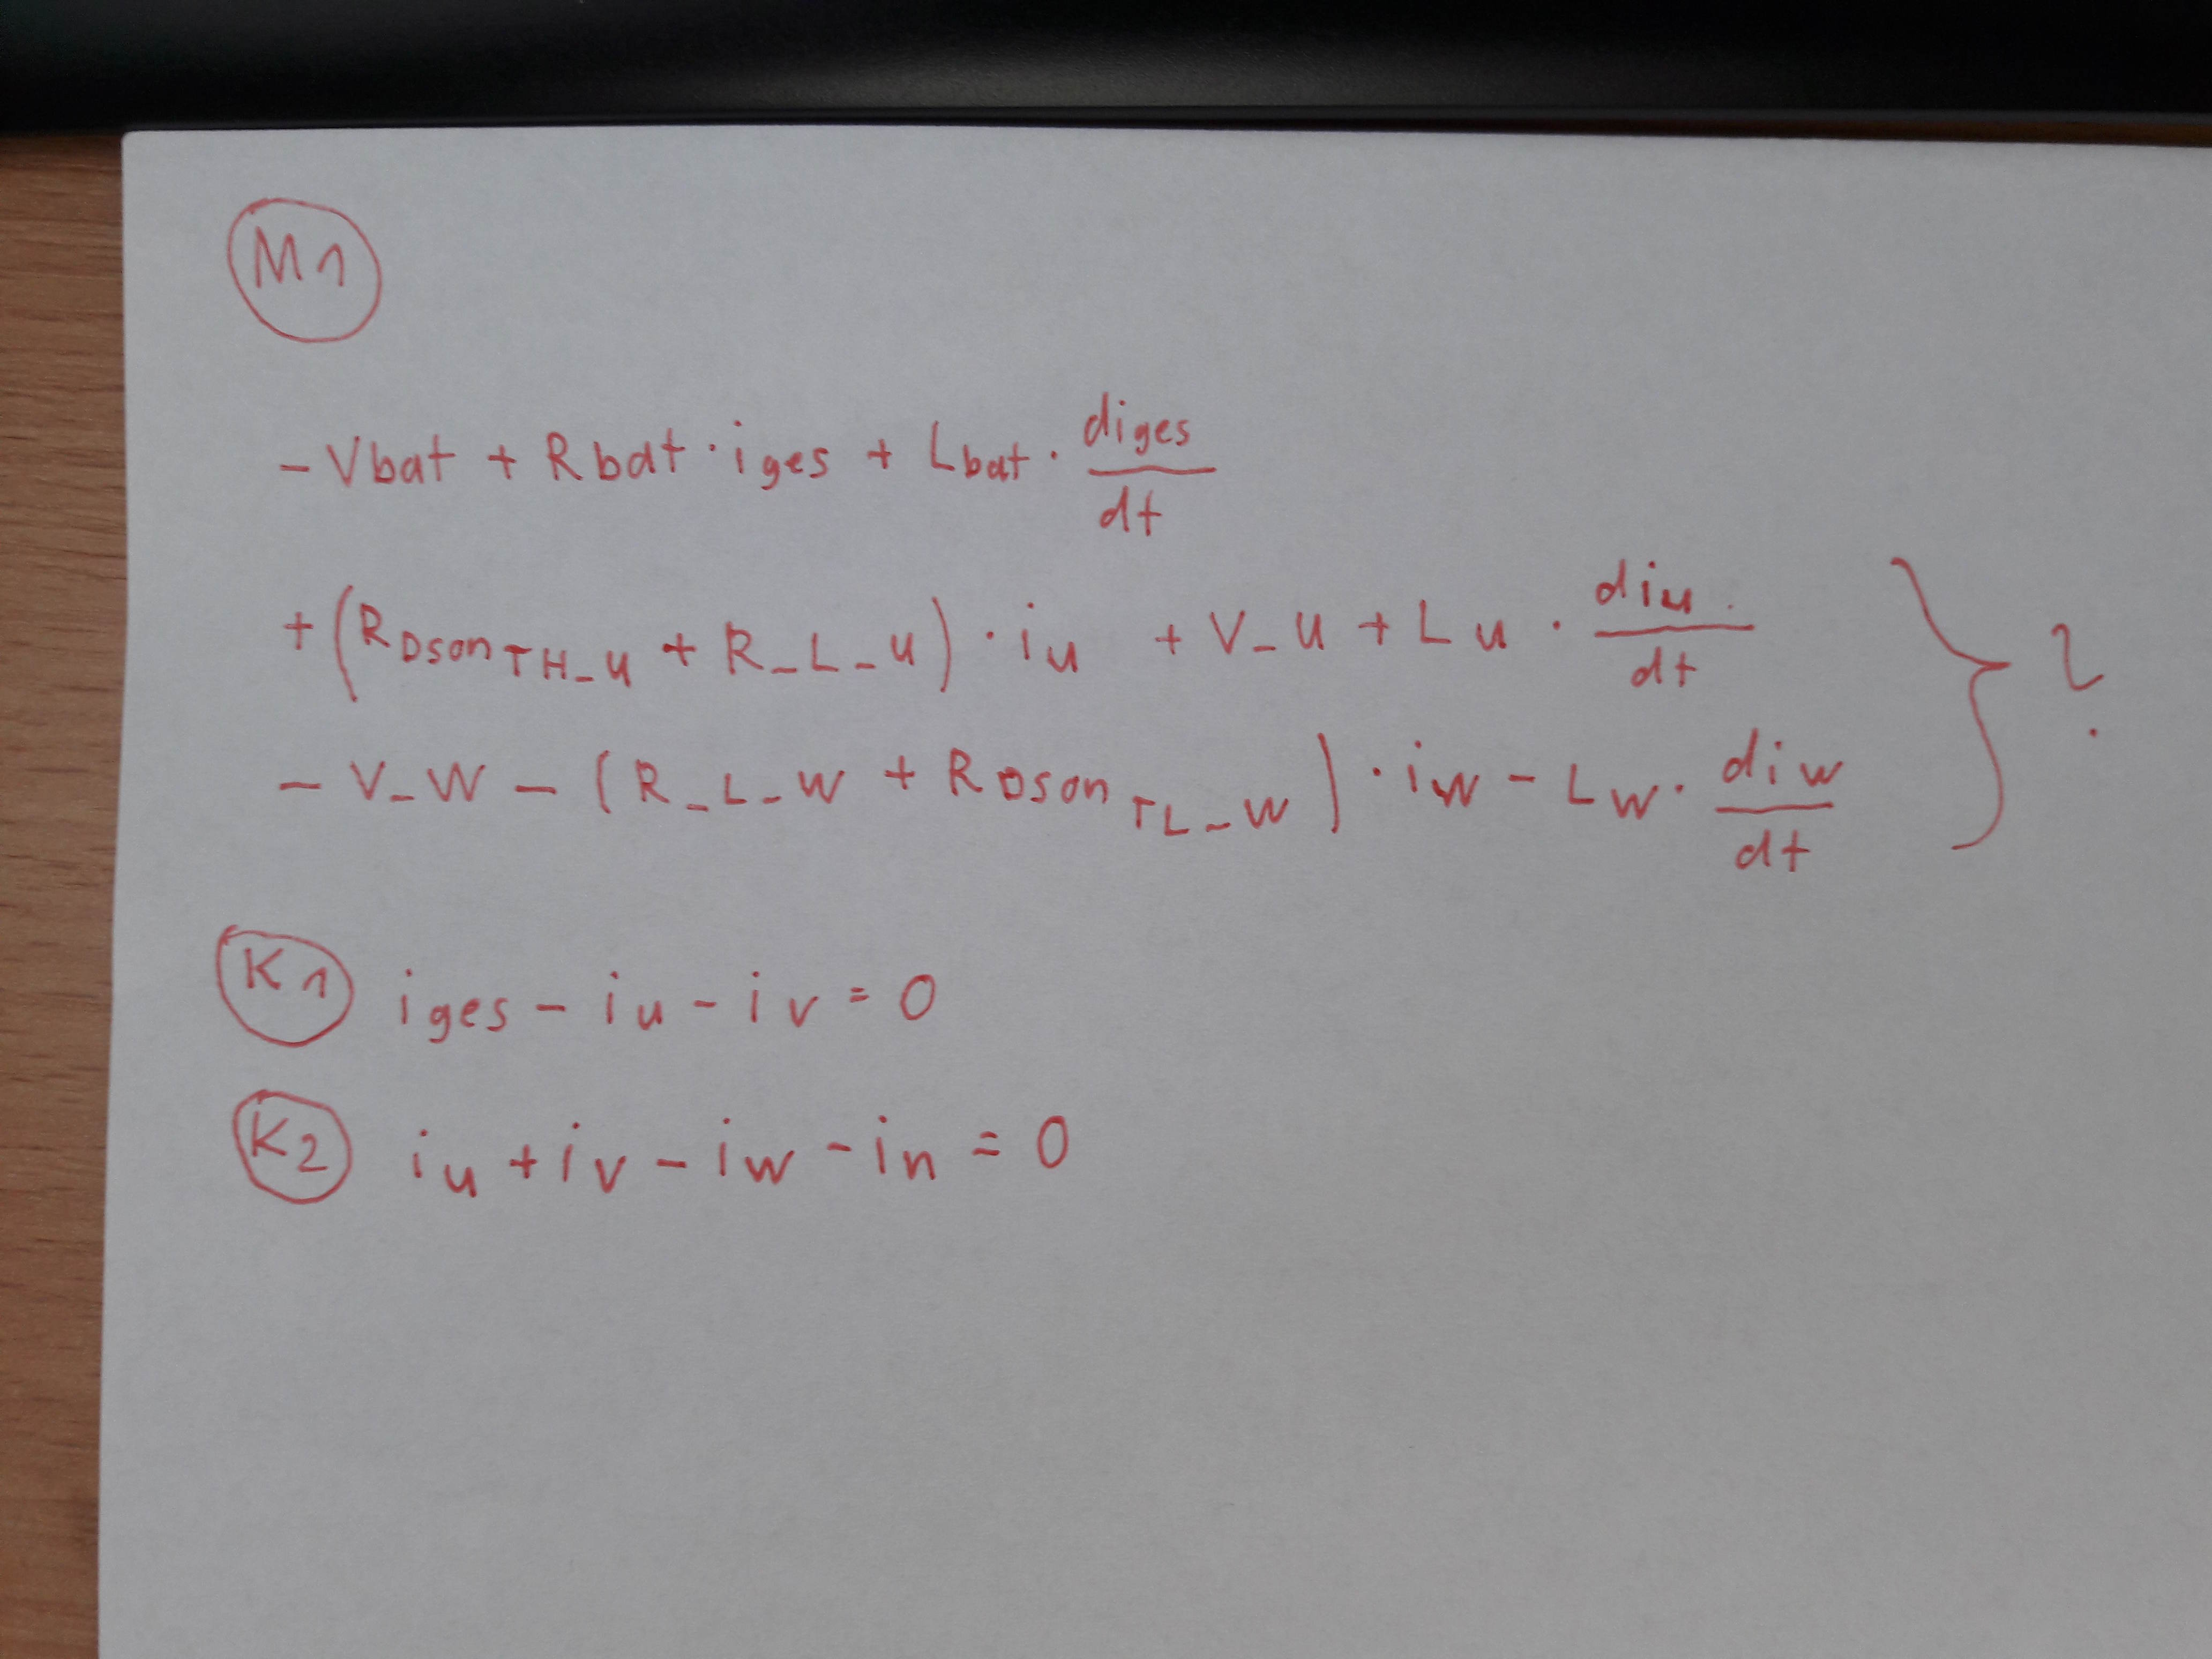 M1
- Vbat + Rbat · iges + Lbat · diges/dt
+ (RDsonTH_u + R_L_u) · iu + V_u + Lu · diu/dt
- V_W - (R_L_W + RDsonTL_W) · iw - Lw · diw/dt } ?
K1 iges - iu - iv = 0
K2 iu + iv - iw - in = 0